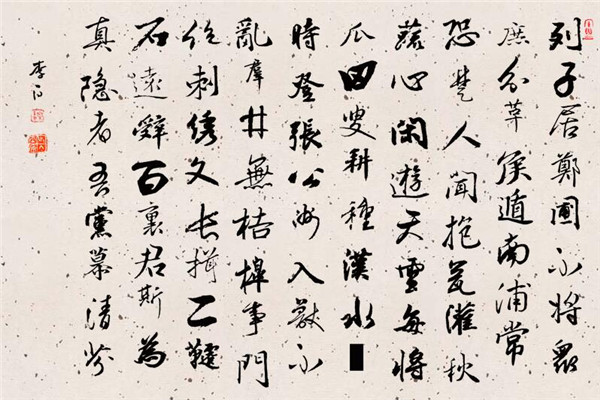 列子居鄭圃不將眾
庶分革侯遁南浦常
恐楚人聞抱瓮灌秋
蔬心閑遊天雲每將
瓜田叟耕種漢水
時登張公洲入獸不
亂群井無桔槔事門
絕刺绣文長揖二韆
石遠辭百裏君斯為
真隐者吾黨慕清芬
李白